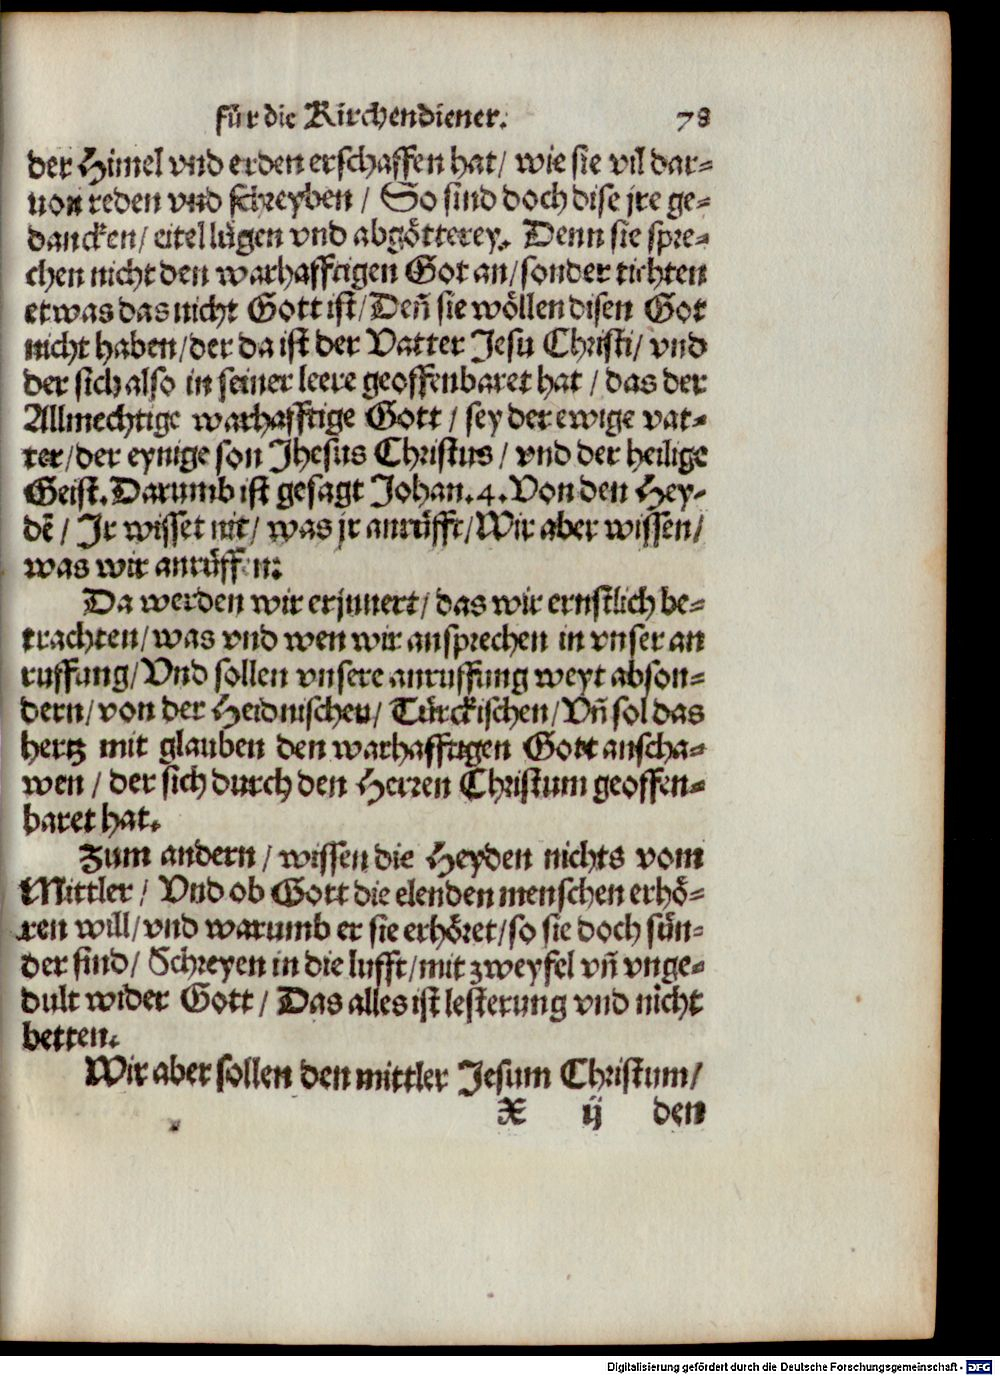 für die Kirchendiener. 78
der Himel vnd erden erschaffen hat/ wie sie vil dar-
uon reden vnd schreyben / So sind doch dise jre ge-
dancken/ eitel lügen vnd abgötterey. Denn sie spre-
chen nicht den warhafftigen Got an/sonder tichten
etwas das nicht Gott ist/Deñ sie wöllen disen Got
nicht haben/der da ist der Vatter Jesu Christi/ vnd
der sich also in seiner leere geoffenbaret hat / das der
Allmechtige warhafftige Gott / sey der ewige vat-
ter/der eynige son Jhesus Christus / vnd der heilige
Geist. Darumb ist gesagt Johan. 4. Von den Hey-
dẽ / Jr wisset nit/ was jr anrüfft/Wir aber wissen/
was wir anrüffen:
Da werden wir erjnnert/ das wir ernstlich be-
trachten/was vnd wen wir ansprechen in vnser an
ruffung/Vnd sollen vnsere anruffung weyt abson-
dern/von der Heidnischen/ Türckischen/Vñ sol das
hertz mit glauben den warhafftigen Gott anscha-
wen / der sich durch den Herren Christum geoffen-
baret hat.
Zum andern / wissen die Heyden nichts vom
Mittler / Vnd ob Gott die elenden menschen erhö-
ren will/vnd warumb er sie erhöret/so sie doch sün-
der sind/ Schreyen in die lufft/mit zweyfel vñ vnge-
dult wider Gott / Das alles ist lesterung vnd nicht
betten.
Wir aber sollen den mittler Jesum Christum/
X ij den
Digitalisierung gefördert durch die Deutsche Forschungsgemeinschaft - DFG